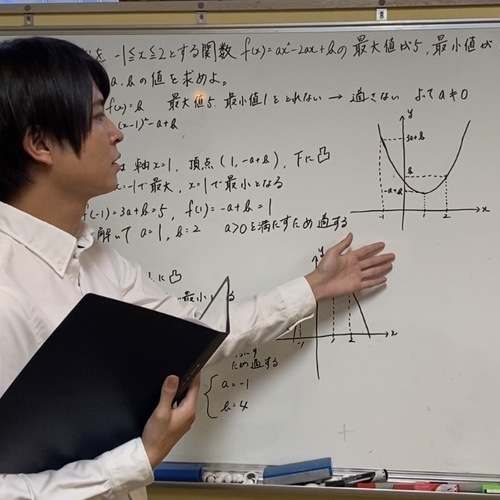 を -1≦x≦2とする関数 f(x)=ax²-2ax+bの 最大値が5,最小値が
a,bの値を求めよ。
f(x)=b 最大値5 最小値1をとれない → 適さない よって a≠0
(x-1)²-a+b
は 軸x=1, 頂点 (1,-a+b), 下に凸
x=-1で最大, x=1で最小となる
f(-1)=3a+b=5, f(1)=-a+b=1
解いて a=1, b=2 a>0を満たすため適する
に凸
で最小となる
ため適する
a=-1
b=4
y
3a+b
b
-a+b
-1
1
2
x
y
-1
1
2
x